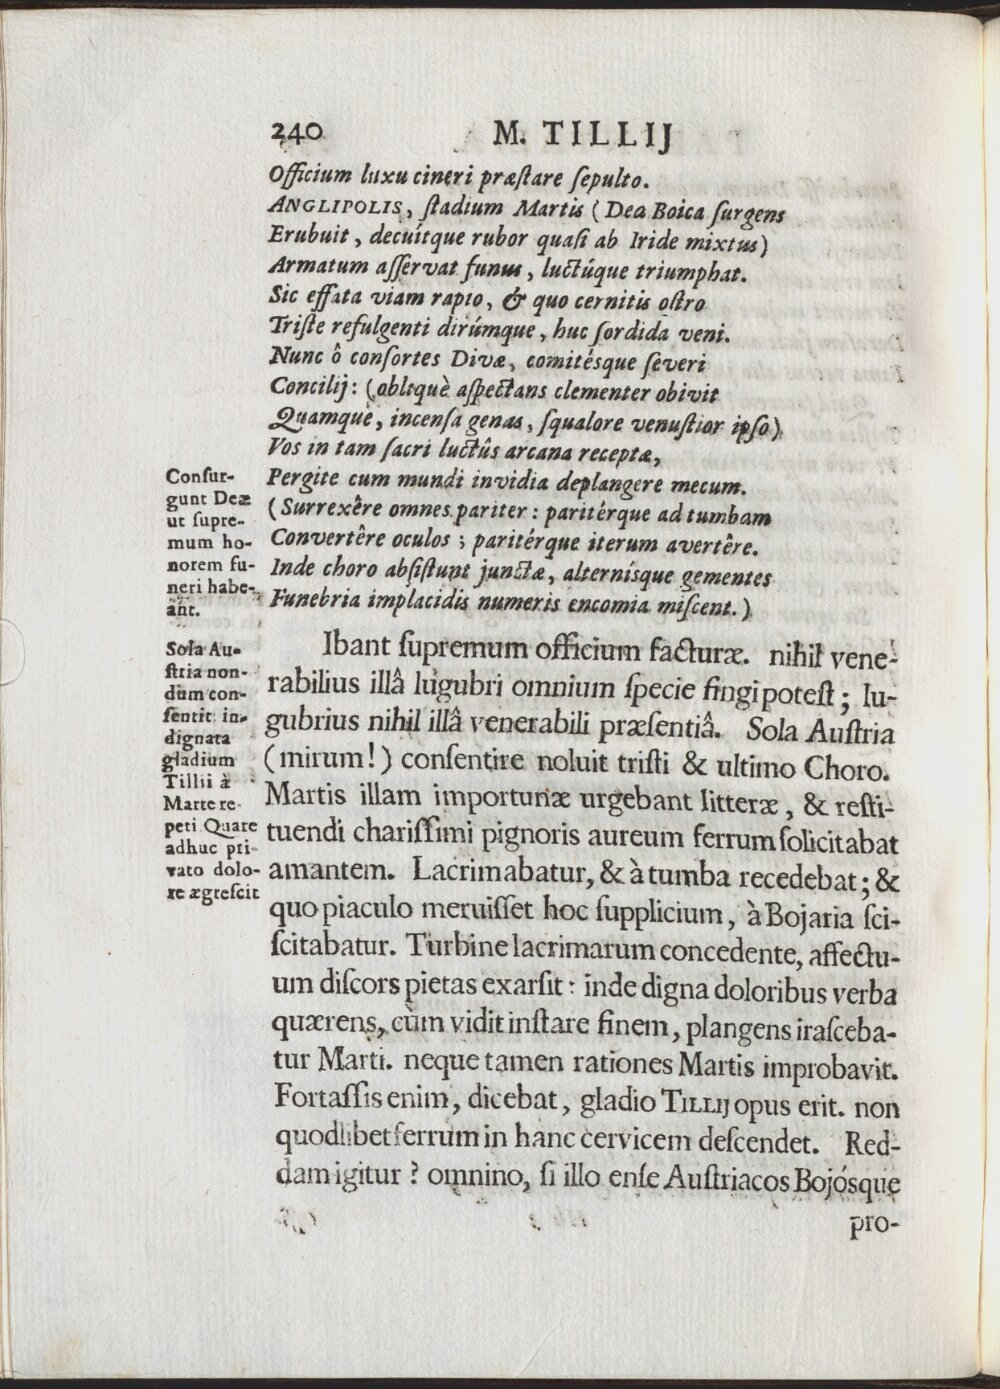 240 M. TILLIJ
Officium luxu cineri præſtare ſepulto.
ANGLIPOLIS, ſtadium Martis (Dea Boica ſurgens
Erubuit, decuítque rubor quaſi ab Iride mixtus)
Armatum aſſervat funus, luctúque triumphat.
Sic effata viam rapio, & quo cernitis oſtro
Triſte refulgenti dirúmque, huc ſordida veni.
Nunc ô conſortes Divæ, comitésque ſeveri
Concilij: (obliquè aſpectans clementer obivit
Quamque, incenſa genas, ſqualore venuſtior ipſo)
Vos in tam ſacri luctûs arcana receptæ,
Pergite cum mundi invidia deplangere mecum.
(Surrexêre omnes pariter: paritérque ad tumbam
Convertêre oculos; paritérque iterum avertêre.
Inde choro abſiſtunt junctæ, alternísque gementes
Funebria implacidis numeris encomia miſcent.)
Conſur-
gunt Deæ
ut ſupre-
mum ho-
norem fu-
neri habe-
ant.
Ibant ſupremum officium facturæ. nihil vene-
rabilius illâ lugubri omnium ſpecie fingi poteſt; lu-
gubrius nihil illâ venerabili præſentiâ. Sola Auſtria
(mirum!) conſentire noluit triſti & ultimo Choro.
Martis illam importunæ urgebant litteræ, & reſti-
tuendi chariſſimi pignoris aureum ferrum ſolicitabat
amantem. Lacrimabatur, & à tumba recedebat; &
quo piaculo meruiſſet hoc ſupplicium, à Bojaria ſci-
ſcitabatur. Turbine lacrimarum concedente, affectu-
um diſcors pietas exarſit: inde digna doloribus verba
quærens, cùm vidit inſtare finem, plangens iraſceba-
tur Marti. neque tamen rationes Martis improbavit.
Fortaſſis enim, dicebat, gladio TILLIJ opus erit. non
quodlibet ferrum in hanc cervicem deſcendet. Red-
dam igitur? omnino, ſi illo enſe Auſtriacos Bojósque
Sola Au-
ſtria non-
dum con-
ſentit in-
dignata
gladium
Tillii à
Marte re-
peti Quare
adhuc pri-
vato dolo-
re ægreſcit
pro-